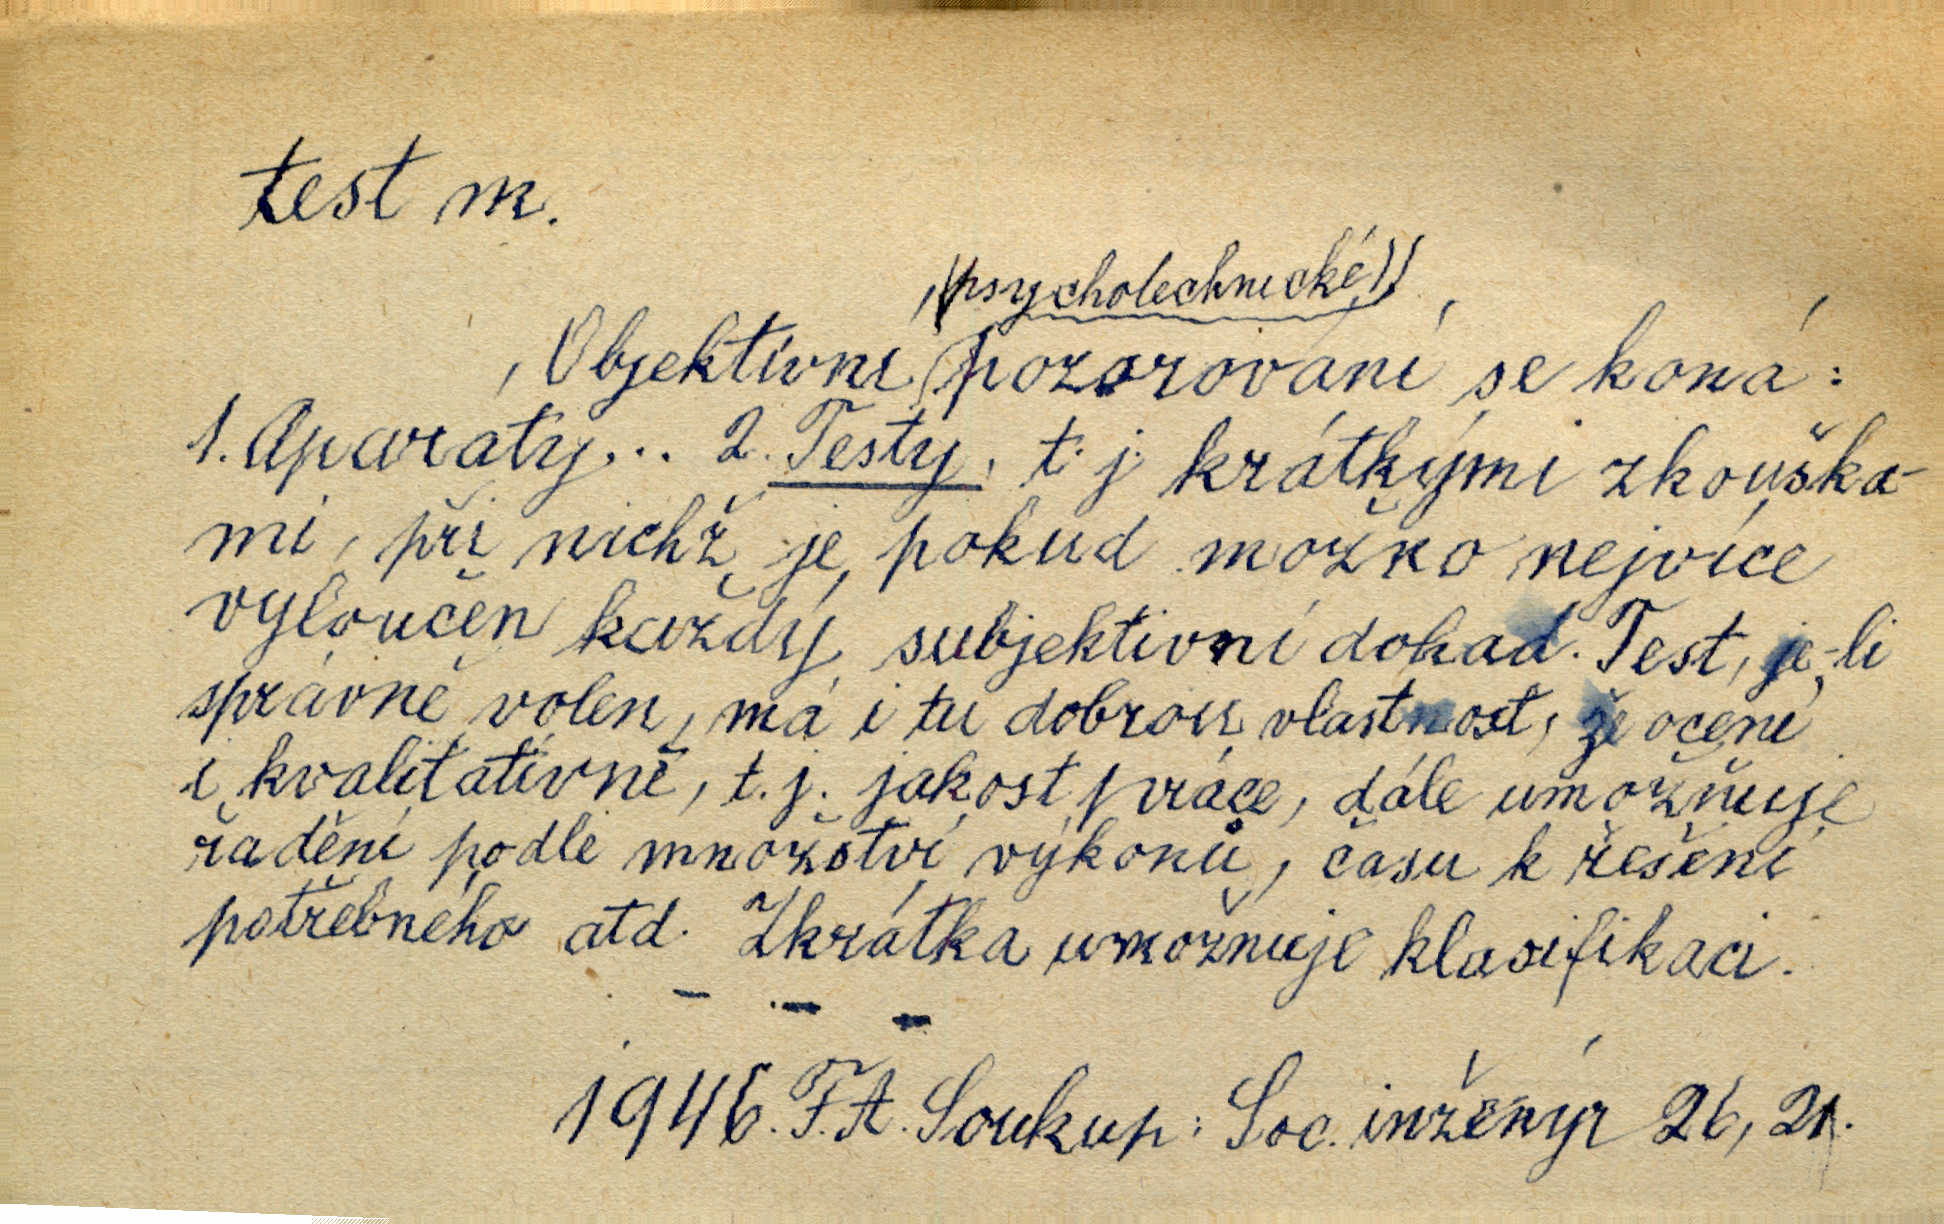 test m.
((psychotechnické))
Objektivní pozorování se koná:
1. Aparáty... 2. Testy, t. j. krátkými zkouška-
mi, při nichž je pokud možno nejvíce
vyloučen každý subjektivní dohad. Test, je-li
správně volen, má i tu dobrou vlastnost, že ocení
i kvalitativně, t. j. jakost práce, dále umožňuje
řadění podle množství výkonů, času k řešení
potřebného atd. Zkrátka umožňuje klasifikaci.
- - -
1946. F. A. Soukup: Soc. inženýr 26, 21.